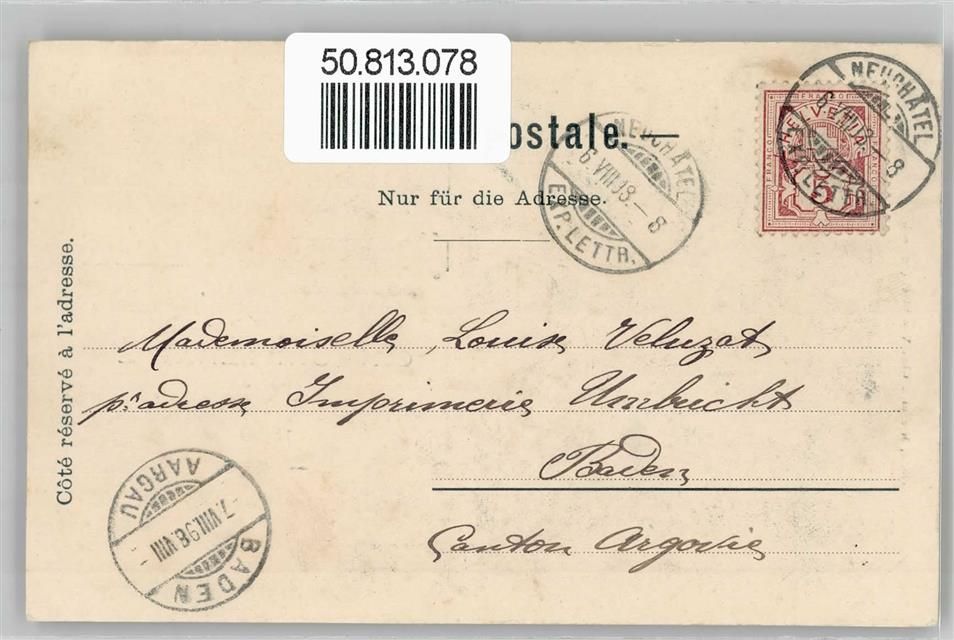 50.813.078
ostale.
Nur für die Adresse.
Côté réservé à l'adresse.
NEUCHÂTEL
6.VIII.98.–8
EXP. LETTR.
NEUCHÂTEL
6.VIII.98.–8
EXP. LETTR.
FRANCO
HELVETIA
FRANCO
FRANCO
5
Mademoiselle, Louise Veluzat
pr adresse Imprimerie Umbricht
Baden
Canton Argovie
BADEN
7.VIII.98.VIII
AARGAU